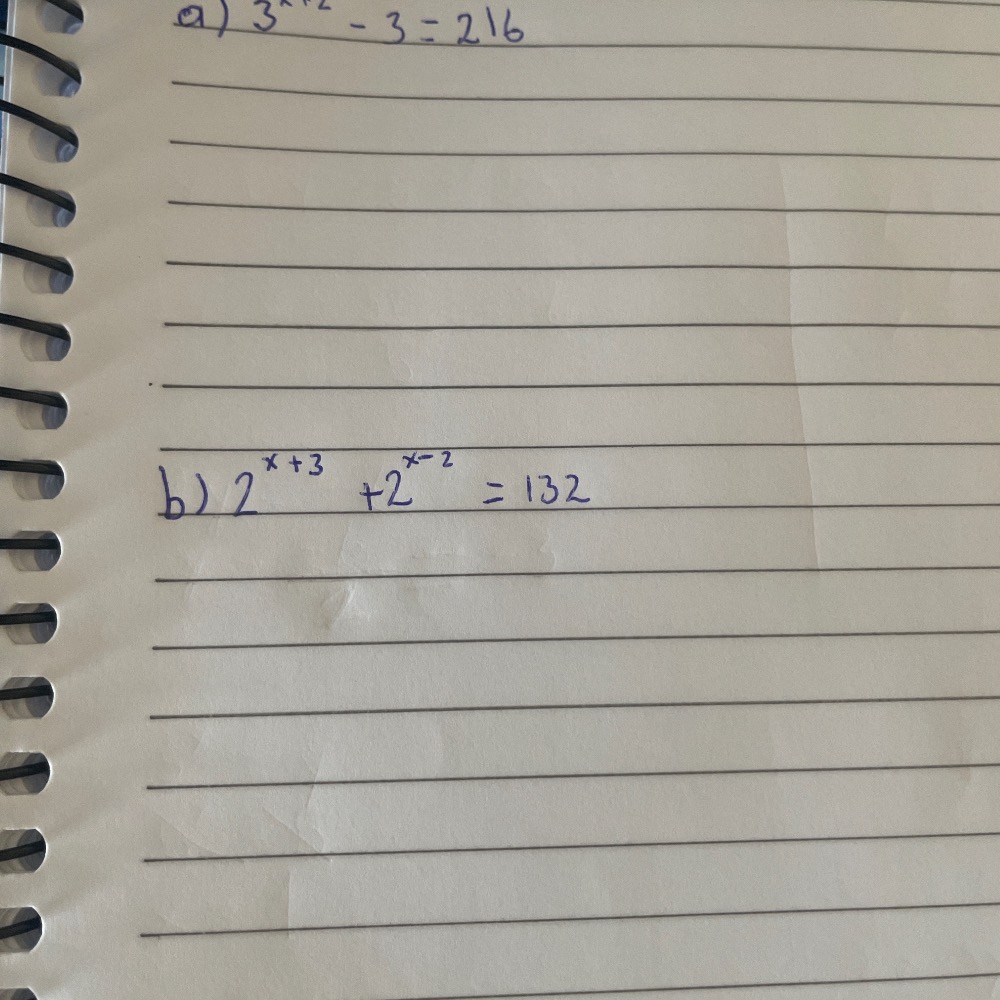 a) 3^x+2 - 3 = 216
b) 2^x+3 + 2^x-2 = 132